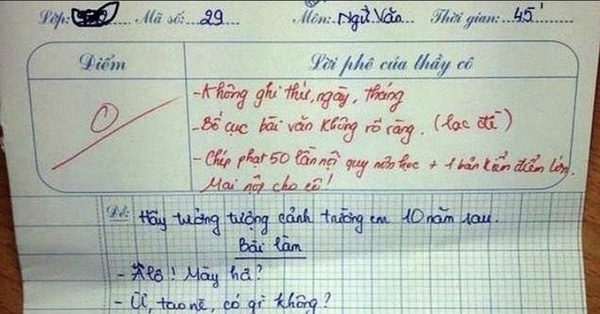 Lớp: Mã số: 29 Môn: Ngữ Văn Thời gian: 45'
Điểm Lời phê của thầy cô
0
- Không ghi thứ, ngày, tháng
- Bố cục bài văn không rõ ràng. (lạc đề)
- Chép phạt 50 lần nội quy môn học + 1 bản kiểm điểm lớn.
Mai nộp cho cô!
Đề: Hãy tưởng tượng cảnh trường em 10 năm sau.
Bài làm
- Alô! Mày hả?
- Ừ, tao nè, có gì không?